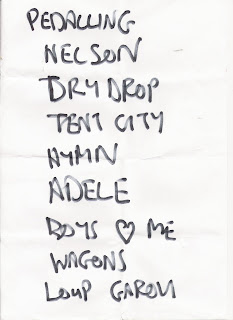 PEDALLING
NELSON
DRY DROP
TENT CITY
HYMN
ADELE
BOYS ♡ ME
WAGONS
LOUP GAROU